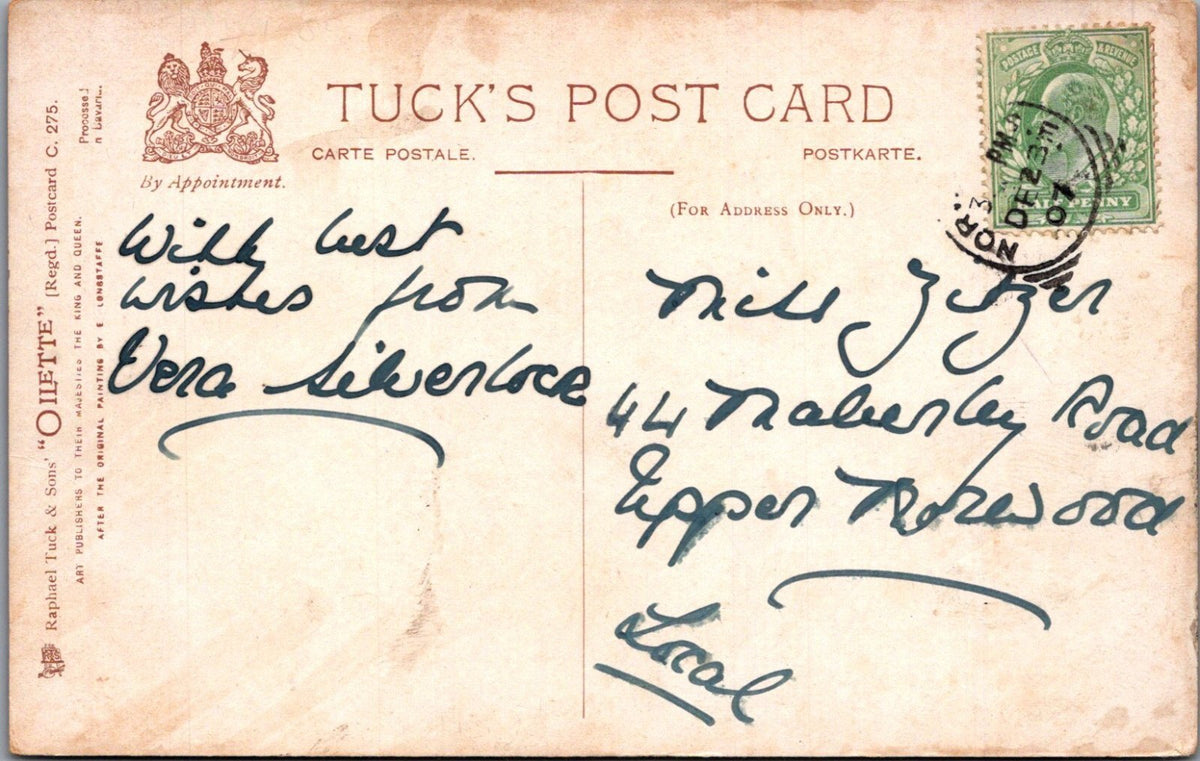 TUCK'S POST CARD
CARTE POSTALE.
POSTKARTE.
By Appointment.
(FOR ADDRESS ONLY.)
With best
wishes from
Vera Silverlock
Miss Zitzer
44 Maberley Road
Upper Norwood
Local
Raphael Tuck & Sons' "OILETTE" [Regd.] Postcard C. 275.
ART PUBLISHERS TO THEIR MAJESTIES THE KING AND QUEEN.
AFTER THE ORIGINAL PAINTING BY E LONGSTAFFE
Processed
n Bavaria.
POSTAGE & REVENUE
HALF PENNY
NOR
3 PM
DE 23
07